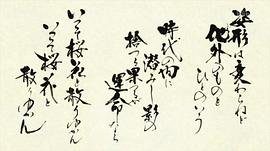 姿形は変わらねど
化外のものと
ひとのいう
時代の陰に
潜みし影の
捨つる果てや
運命なら
いつそ桜花と散りゆかん
いつそ桜花と
散りゆかん